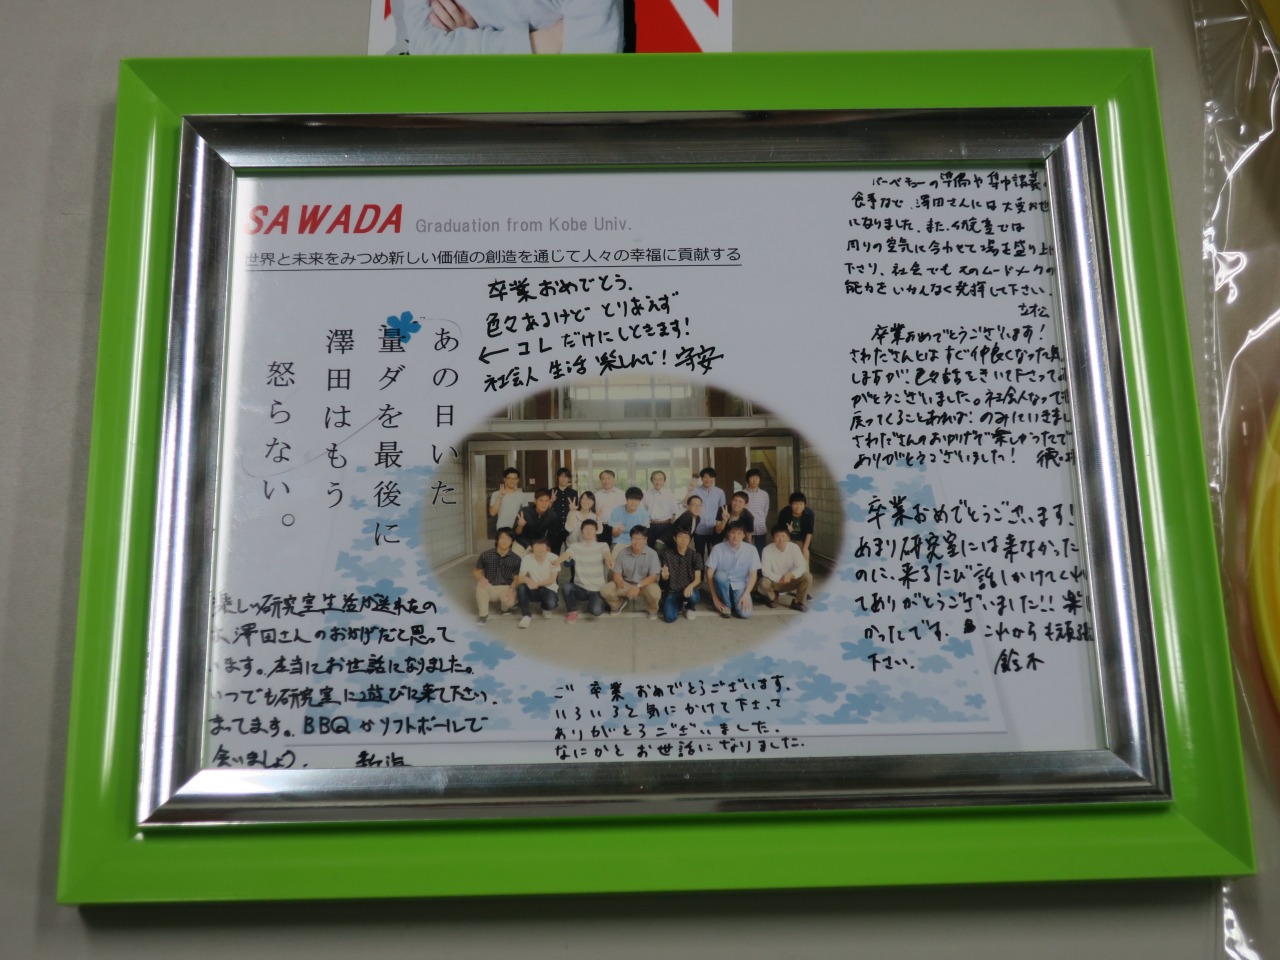 SAWADA Graduation from Kobe Univ.
世界と未来をみつめ新しい価値の創造を通じて人々の幸福に貢献する
あの日いた
量ダを最後に
澤田はもう
怒らない。
卒業おめでとう。
色々あるけど とりあえず
← コレ だけにしときます!
社会人 生活 楽しんで! 宇安
バーベキューの準備や集中講義
食事など、澤田さんには大変お世
になりました。また、研究室では
周りの空気に合わせて場を盛り上
下さり、社会でもそのムードメイク
能力をいかんなく発揮して下さい。
立松
卒業おめでとうございます!
さわださんとはすぐ仲良くなった気
しますが、色々話をきいて下さって
がとうございました。社会人なっても
戻ってくることあれば、のみにいきまし
さわださんのおかげで楽しかったで
ありがとうございました!
卒業おめでとうございます!
あまり研究室には来なかった
のに、来るたび話しかけてくれ
てありがとうございました!! 楽し
かったです。これからも頑張
下さい。 鈴木
楽しい研究室生活が送れたの
澤田さんのおかげだと思って
います。本当にお世話になりました。
いつでも研究室に遊びに来て下さい。
まってます。BBQかソフトボールで
会いましょう。
ご卒業おめでとうございます。
いろいろと気にかけて下さって
ありがとうございました。
なにかとお世話になりました。